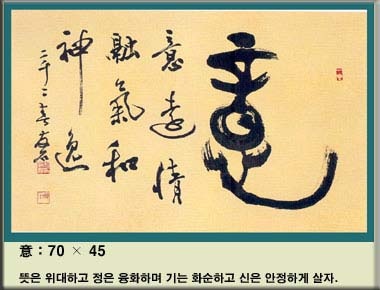 意
意遠情
融氣和
神逸
二千二春
意 : 70 × 45
뜻은 위대하고 정은 융화하며 기는 화순하고 신은 안정하게 살자.